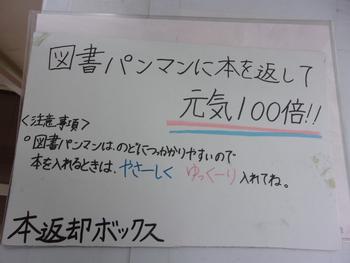 図書パンマンに本を返して
元気100倍!!
<注意事項>
○図書パンマンは、のどにつっかかりやすいので
本を入れるときは、やさーしく ゆっくーり 入れてね。
本返却ボックス